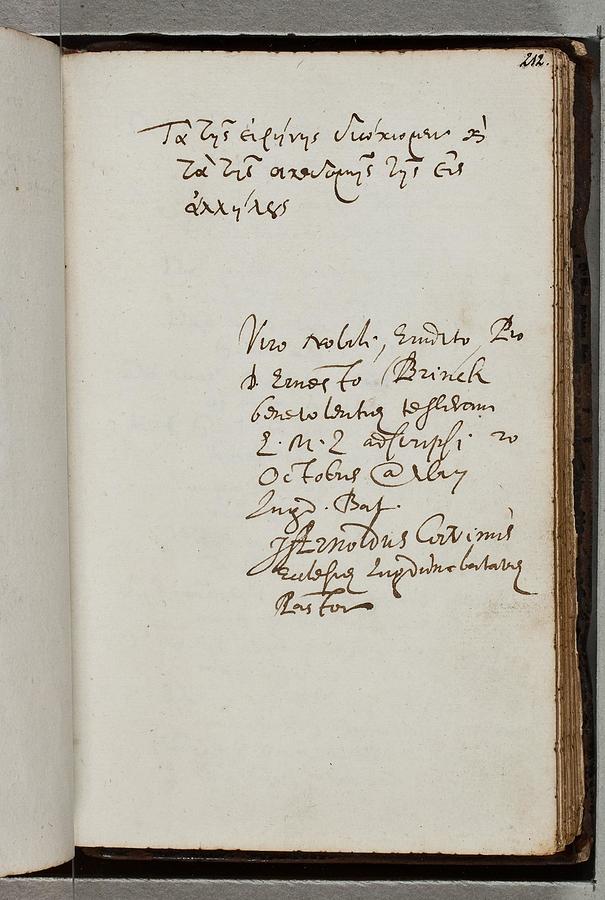 212.
Τὰ τῆς εἰρήνης διώκωμεν καὶ
τὰ τῆς οἰκοδομῆς τῆς εἰς
ἀλλήλους
Viro Nobili, Erudito, Pio
D Ernesto Brinck
benevolentiæ tesseram
L. M. Q adscripsi. 20
Octobris
Lugd. Bat.
Arnoldus Corvinus
Ecclesiæ Lugduno batavæ
Pastor